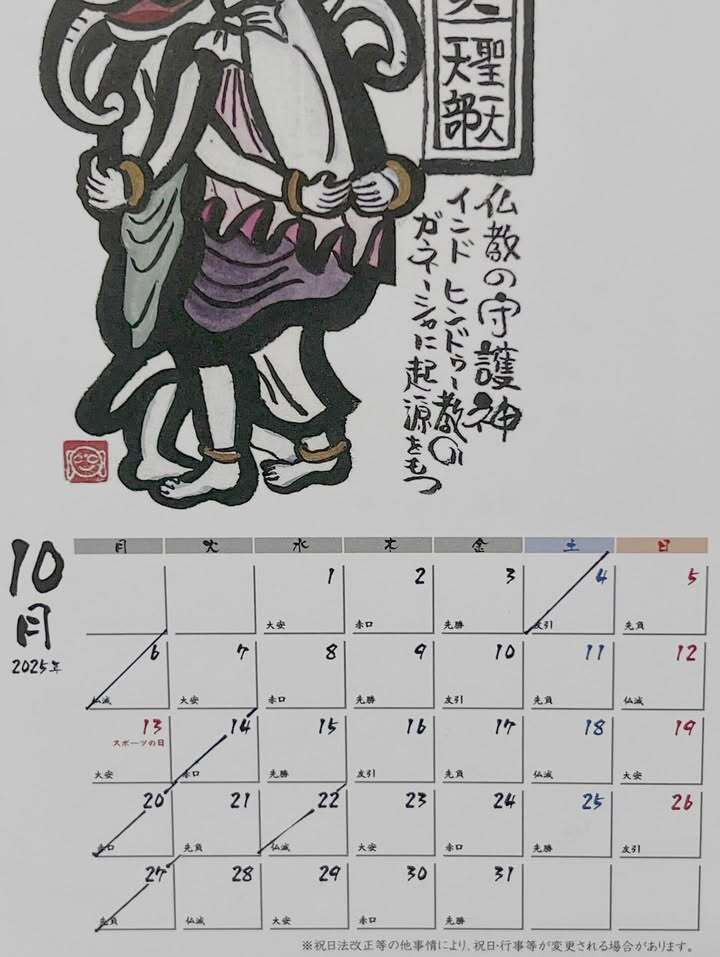 聖天
天部
仏教の守護神
インド ヒンドゥー教の
ガネーシャに起源をもつ
10
月
2025年
月 火 水 木 金 土 日
1 2 3 4 5
大安 赤口 先勝 友引 先負
6 7 8 9 10 11 12
仏滅 大安 赤口 先勝 友引 先負 仏滅
13 14 15 16 17 18 19
スポーツの日
大安 赤口 先勝 友引 先負 仏滅 大安
20 21 22 23 24 25 26
赤口 先負 仏滅 大安 赤口 先勝 友引
27 28 29 30 31
先負 仏滅 大安 赤口 先勝
※祝日法改正等の他事情により、祝日・行事等が変更される場合があります。